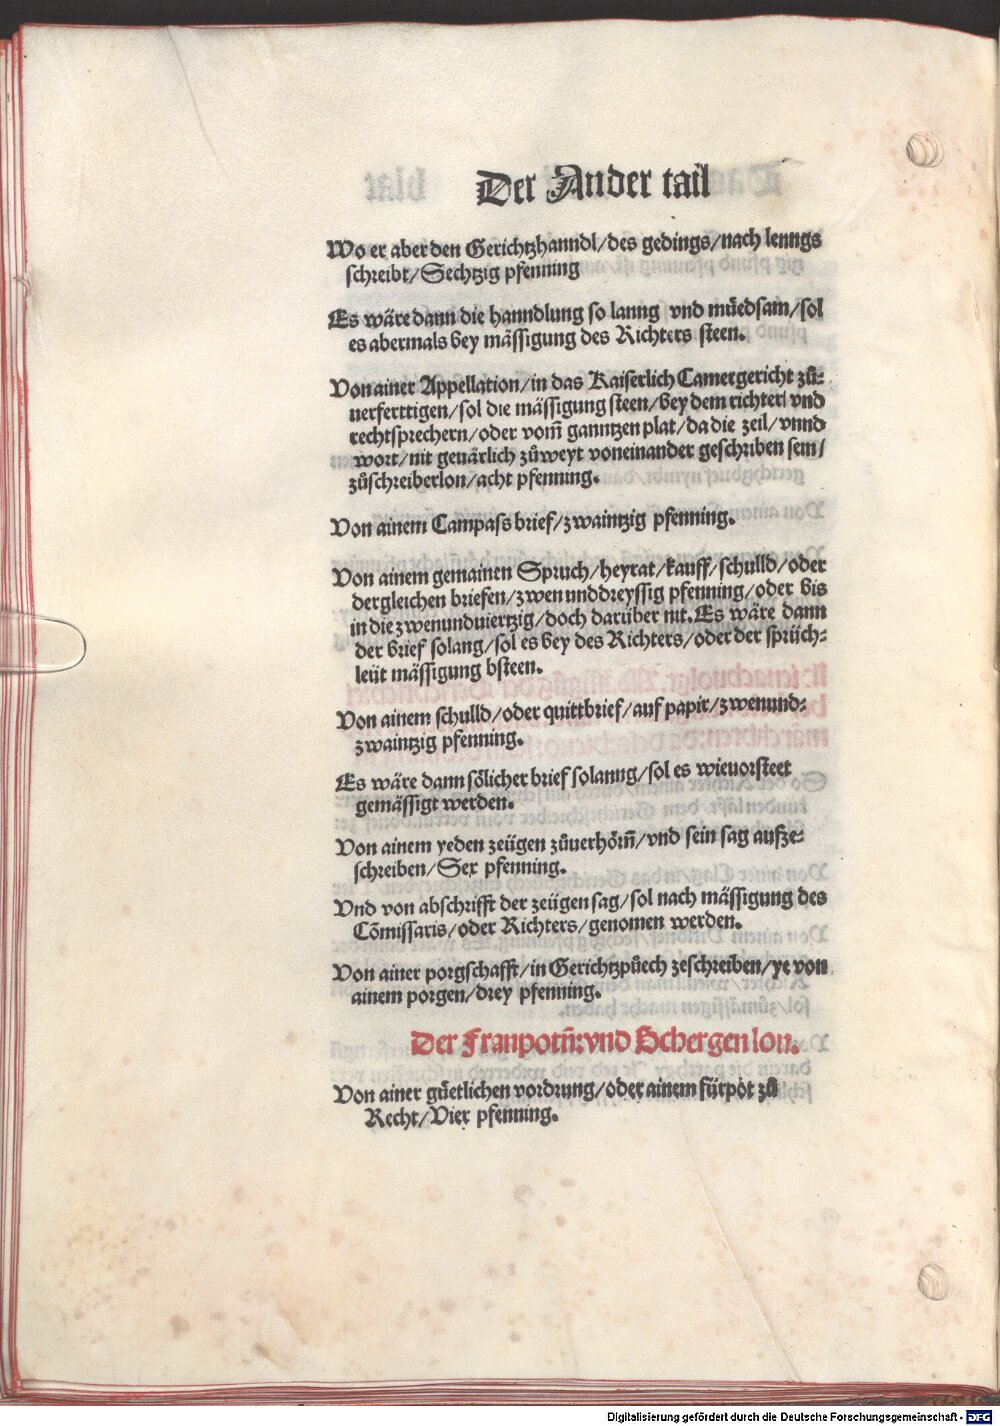 Der Ander tail
Wo er aber den Gerichtzhanndl/des gedings/nach lenngs
schreibt/Sechtzig pfenning
Es wäre dann die hanndlung so lanng vnd müedsam/sol
es abermals bey mässigung des Richters steen.
Von ainer Appellation/in das Kaiserlich Camergericht zů-
uerferttigen/sol die mässigung steen/bey dem richter/vnd
rechtsprechern/oder vom̃ ganntzen plat/da die zeil/vnnd
wort/nit geuärlich zůweyt voneinander geschriben sein/
zůschreiberlon/acht pfenning.
Von ainem Campass brief/zwaintzig pfenning.
Von ainem gemainen Spruch/heyrat/kauff/schulld/oder
dergleichen briefen/zwen unddreyssig pfenning/oder bis
in die zwenunduiertzig/doch darüber nit. Es wäre dann
der brief solang/sol es bey des Richters/oder der sprüch-
leüt mässigung bsteen.
Von ainem schulld/oder quittbrief/auf papir/zwenund-
zwaintzig pfenning.
Es wäre dann sölicher brief solanng/sol es wieuorsteet
gemässigt werden.
Von ainem yeden zeügen zůuerhörñ/vnd sein sag aufze-
schreiben/Sex pfenning.
Vnd von abschrifft der zeügen sag/sol nach mässigung des
Cõmissaris/oder Richters/genomen werden.
Von ainer porgschafft/in Gerichtzpůech zeschreiben/ye von
ainem porgen/drey pfenning.
Der Franpotñ: vnd Schergen lon.
Von ainer gůetlichen vordrung/oder ainem fürpot zů
Recht/Vier pfenning.
Digitalisierung gefördert durch die Deutsche Forschungsgemeinschaft - DFG